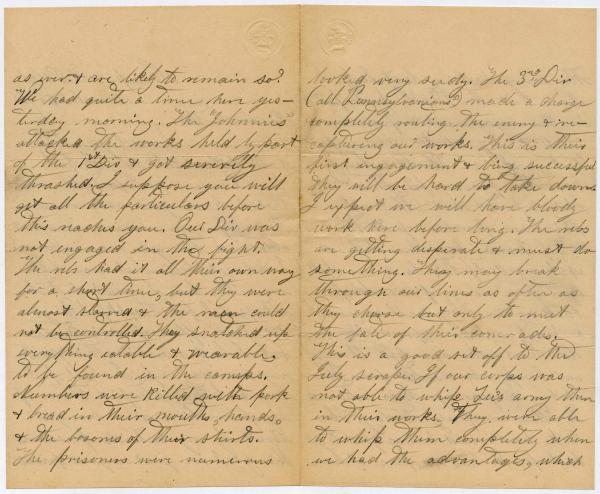 as ever & are likely to remain so?
We had quite a time here yes-
terday morning. The "Johnnies"
attacked the works held by part
of the 1st Div & got severely
thrashed. I suppose you will
get all the particulars before
this reaches you. Our Div was
not engaged in the fight.
The rebs had it all their own way
for a short time, but they were
almost starved & the men could
not be controlled. They snatched up
everything eatable & wearable
to be found in the camps.
Numbers were killed with pork
& bread in their mouths, hands,
& the bosoms of their shirts.
The prisoners were numerous
looked very seedy. The 3rd Div
(all Pennsylvanians) made a charge
completely routing the enemy & re-
capturing our works. This is their
first engagement & being successful
they will be hard to take down.
I expect we will have bloody
work here before long. The rebs
are getting desperate & must do
something. They may break
through our lines as often as
they choose but only to meet
the fate of their comrads.
This is a good set off to the
July scrape. If our corps was
not able to whip Lee's army then
in their works, They were able
to whip them completely when
we had the advantages, which